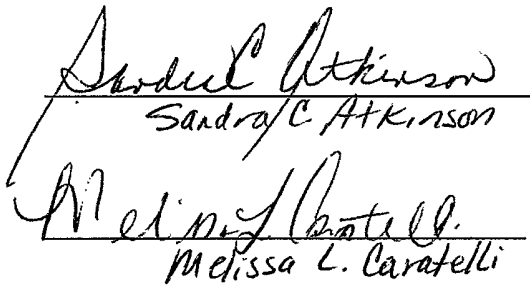 Sandra C Atkinson
Sandra C Atkinson
Melissa L Caratelli
Melissa L. Caratelli